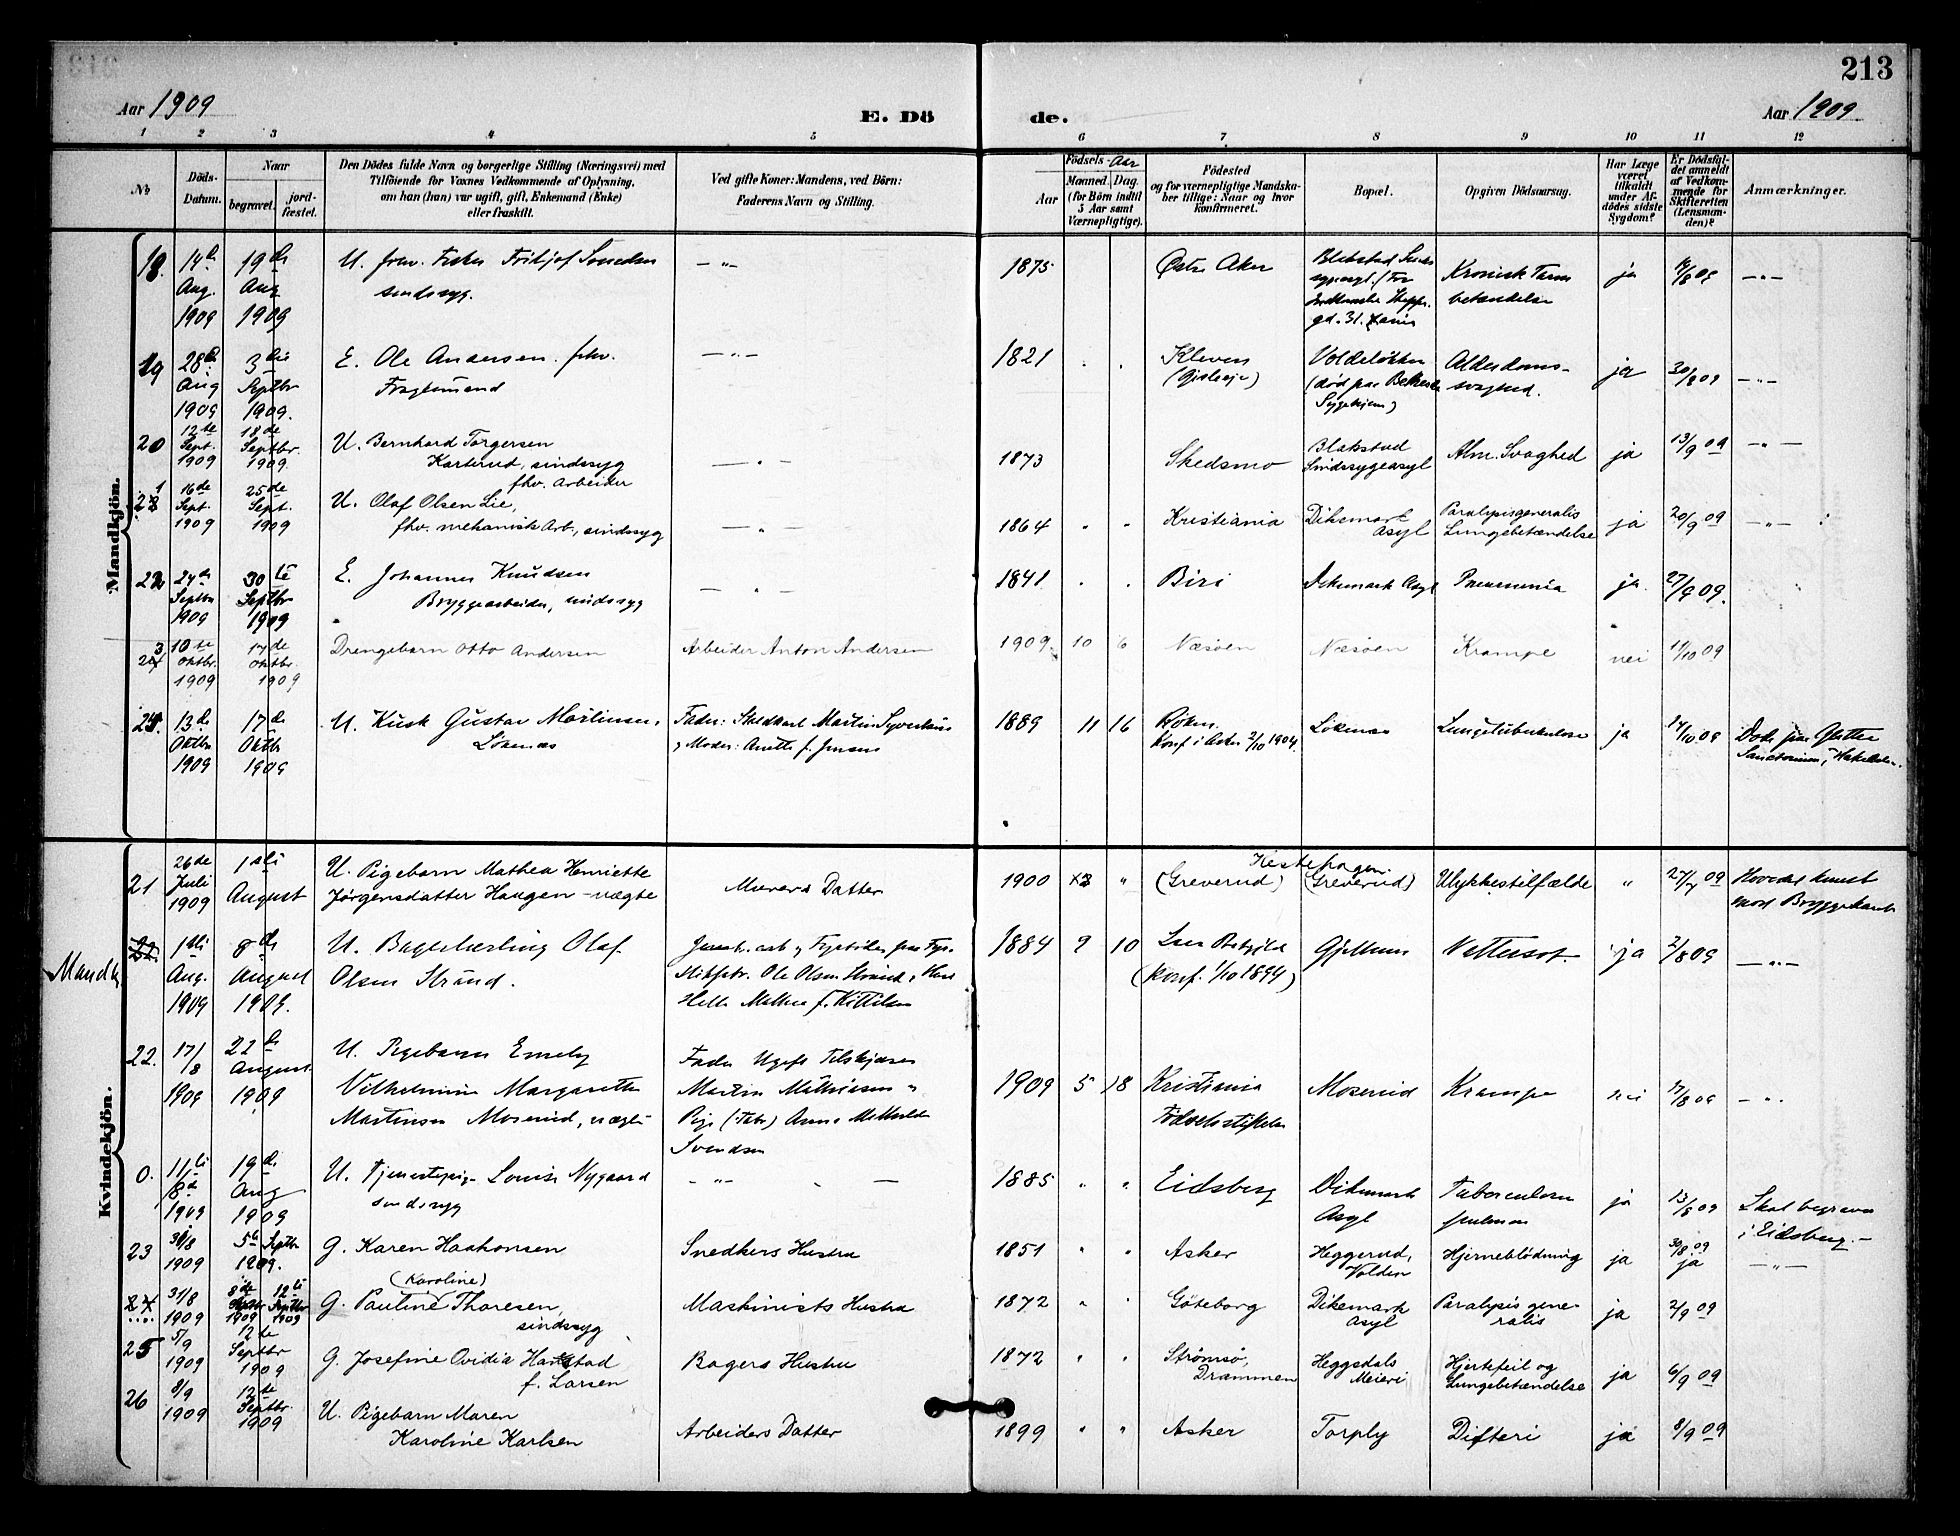 213
Aar 1909
E. Dö
de.
Aar 1909
1 2 3 4 5 6 7 8 9 10 11 12
No
Döds-
Datum.
Naar
begravet.
jord-
fæstet.
Den Dödes fulde Navn og borgerlige Stilling (Næringsvei) med
Tilföiende for Voxnes Vedkommende af Oplysning,
om han (hun) var ugift, gift, Enkemand (Enke)
eller fraskilt.
Ved gifte Koner: Mandens, ved Börn:
Faderens Navn og Stilling.
Födsels-Aar
Aar
Maaned. Dag.
(for Börn indtil
5 Aar samt
Værnepligtige).
Födested
og for værnepligtige Mandska-
ber tillige: Naar og hvor
konfirmeret.
Bopæl.
Opgiven Dödsaarsag.
Har Læge
været
tilkaldt
under Af-
dödes sidste
Sygdom?
Er Dödsfal-
det anmeldt
af Vedkom-
mende for
Skifteretten
(Lensman-
den)?
Anmærkninger.
Mandkjön.
18. 14de Aug. 1909 19de Aug 1909
U. frhv. Fisker Fritjof
sindssyg.
1875 Østre Aker
Kronisk Tarm
betændelse
ja
19 28de Aug 1909 3die Septbr 1909.
E. Ole Andersen. fhv.
1821
Voldeløkken
(død paa
Sygehjem)
Alderdoms-
svaghed.
ja 30/8 09
20 12te Sept. 1909 18de Septbr. 1909.
U. Bernhard Torgersen
Karterud, sindssyg
fhv. Arbeider
1873 Skedsmo
Blakstad
Sindssygeasyl
Alm. Svaghed
ja 13/9 09
21 16de Sept. 1909 25de Sept. 1909
U. Olaf Olsen Lie,
fhv. mekanisk Arb., sindssyg
1864 Kristiania
Dikemark
Asyl
Paralysisgeneralis
Lungebetændelse
ja 20/9 09
22 24de Septbr 1909 30te Septbr 1909
E. Johannes Knudsen
Bryggearbeider, sindssyg
1841 Biri Dikemark Asyl Pneumonia ja. 27/9 09.
23 10de Oktbr. 1909 17de Oktbr. 1909
Drengebarn Otto Andersen
Arbeider Anton Andersen
1909 10 6 Næsøen Næsøen Krampe nei 11/10 09
24. 13de Oktbr 1909 17de Oktb 1909
U. Kusk Gustav Martinsen,
Løkenæs
Fader: Martin
og Moder: Anette f. Jensen
1889 11 16 Røken.
Konf i Asker 2/10 1904.
Løkenæs Lungetuberkulose ja 14/10 09
Døde paa Glitter
Sanatorium, Hakedalen.
Kvindekjön.
21 26de Juli 1909 1ste August
U. Pigebarn Mathea Henriette
Jørgensdatter Haugen – uægte
Murers Datter
1900
Kistehagen
(Greverud) (Greverud) Ulykkestilfælde 27/7 09
Hovedet knust
mod Bryggekant
Mandk
22. 1ste Aug. 1909 8de August 1909.
U. Olaf
Olsen Strand.
Ole Olsen Strand
Mathea f. Kittilsen
1884 9 10
(Konf. 1/10 1899)
Gjellum ja 2/8 09
22. 17/8 1909 22de August. 1909
U. Pigebarn Emely
Vilhelmine Margarethe
Martinsen Moserud, uægte
Fader Ugift
Martin Mathiesen og
Pige Anna Mathilde
Svendsen
1909 5 18 Kristiania
Fødselsstiftelse
Moserud Krampe nei 17/8 09
0. 11te 8de 1909 19de Aug 1909
U. Tjenestepige Louise Nygaard
sindssyg
1885 Eidsberg
Dikemark
Asyl
Tuberculosis
pulmon
ja 13/8 09
Skal begraves
i Eidsberg.–
23 30/8 1909 5te Septbr 1909.
G. Karen Haakonsen
Snedkers Hustru
1851 Asker
Heggerud,
Volden
Hjerneblödning ja 30/8 09
ja
24 31/8 1909 8de Septbr 1909 12te Septbr 1909
(Karoline)
G. Pauline Thoresen,
sindssyg
Maskinists Hustru
1872 Göteborg
Dikemark
Asyl
Paralysis gene-
ralis
ja 2/9 09
25 5/9 1909 12te Septbr 1909
G. Josefine Ovidia Harstad
f. Larsen
Bagers Hustru
1872 Strømsø,
Drammen
Heggedals
Meieri
Hjertefeil og
Lungebetændelse
ja 6/9 09
26 8/9 1909 12te Septbr. 1909
U. Pigebarn Maren
Karoline Karlsen
Arbeiders Datter
1899 Asker Torply Difteri ja 8/9 09